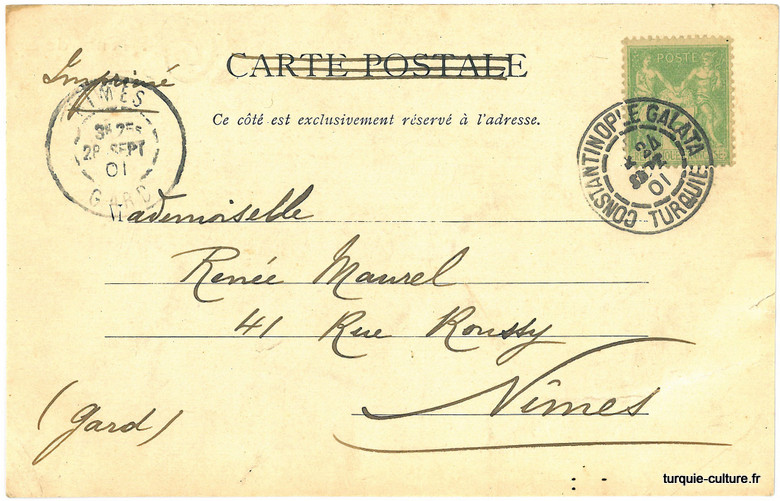 CARTE POSTALE
Imprimé
Ce côté est exclusivement réservé à l'adresse.
NIMES
28 SEPT
01
GARD
POSTE
CONSTANTINOPLE GALATA
24
SEPT
01
TURQUIE
Mademoiselle
Renée Maurel
41 Rue Roussy
Nîmes
(Gard)
turquie-culture.fr